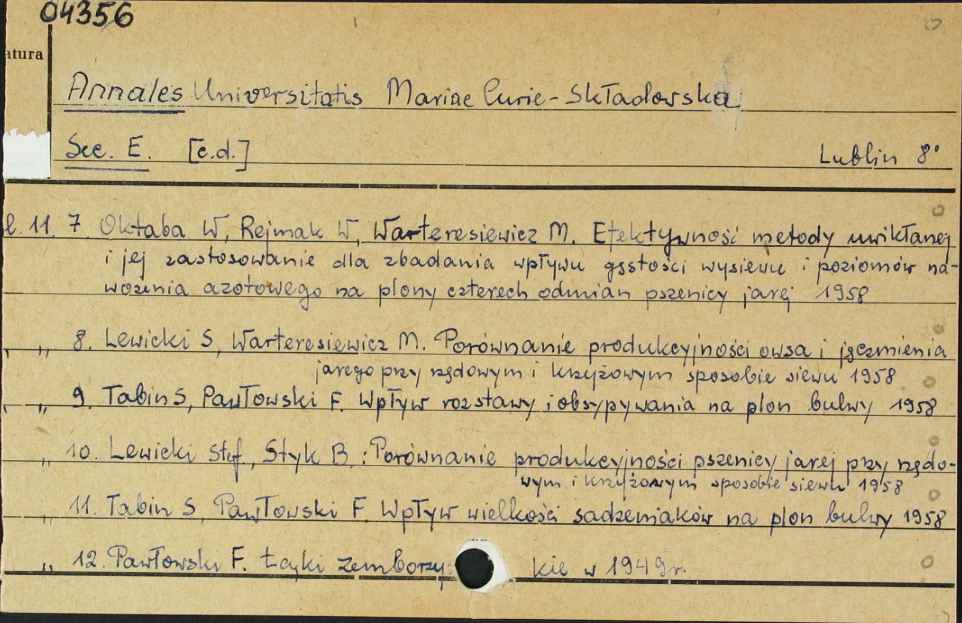 04356
atura
Annales Universitatis Mariae Curie-Składowska
Sec. E. [c.d.] Lublin 8°
l. 11. 7. Oktaba W, Rejmak W, Warteresiewicz M. Efektywność metody uwikłanej
i jej zastosowanie dla zbadania wpływu gęstości wysiewu i poziomów na-
wożenia azotowego na plony czterech odmian pszenicy jarej 1958
" 8. Lewicki S, Warteresiewicz M. Porównanie produkcyjności owsa i jęczmienia
jarego przy rzędowym i krzyżowym sposobie siewu 1958
" 9. Tabin S, Pawłowski F. Wpływ rozstawy i obsypywania na plon bulwy 1958
" 10. Lewicki Stef., Styk B.: Porównanie produkcyjności pszenicy jarej przy rzędo-
wym i krzyżowym sposobie siewu 1958
" 11. Tabin S, Pawłowski F. Wpływ wielkości sadzeniaków na plon bulwy 1958
" 12. Pawłowski F. Łąki zemborzy kie w 1949r.